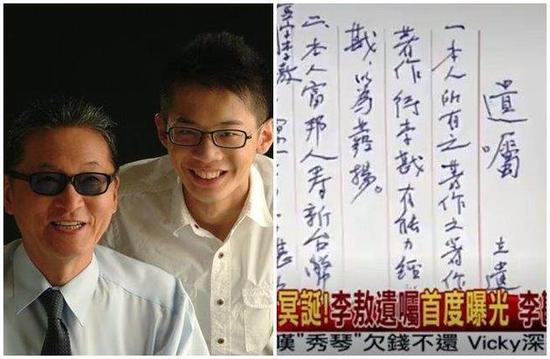 遺囑 立遺
一本人所有之著作之著作
著作待李戡有能力經
戡,以為揚。
二本人富邦人壽新台幣
李敖
冥誕!李敖遺囑首度曝光 李
嘆"秀琴"欠錢不還 Vicky深